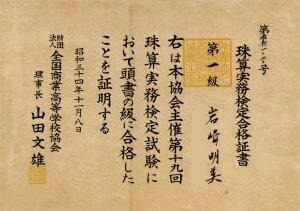 珠算実務検定合格証書
第一級
岩崎明美
右は本協会主催第十九回
珠算実務検定試験に
おいて頭書の級に合格した
ことを証明する
昭和三十四年十一月八日
財団法人 全国商業高等学校協会
理事長 山田文雄